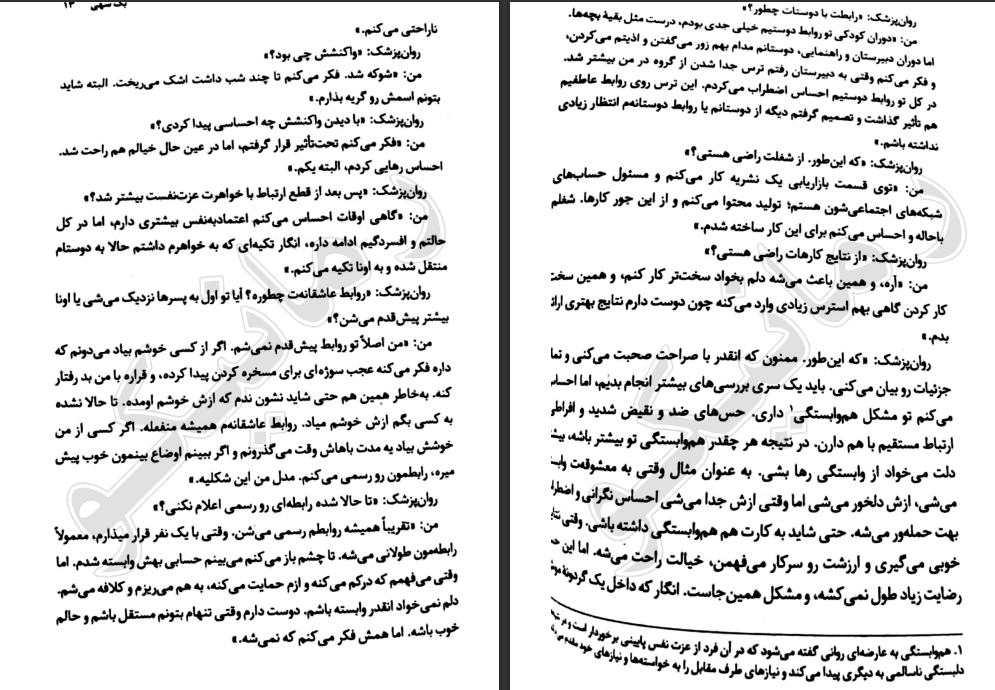 ۱۳
ناراحتی می‌کنم.»
روان‌پزشک: «واکنشش چی بود؟»
من: «شوکه شد. فکر می‌کنم تا چند شب داشت اشک می‌ریخت. البته شاید
بتونم اسمش رو گریه بذارم.»
روان‌پزشک: «با دیدن واکنشش چه احساسی پیدا کردی؟»
من: «فکر می‌کنم تحت‌تأثیر قرار گرفتم، اما در عین حال خیالم هم راحت شد.
احساس رهایی کردم، البته یکم.»
روان‌پزشک: «پس بعد از قطع ارتباط با خواهرت عزت‌نفست بیشتر شد؟»
من: «گاهی اوقات احساس می‌کنم اعتمادبه‌نفس بیشتری دارم، اما در کل
حالتم و افسردگیم ادامه داره، انگار تکیه‌ای که به خواهرم داشتم حالا به دوستام
منتقل شده و به اونا تکیه می‌کنم.»
روان‌پزشک: «روابط عاشقانه‌ت چطوره؟ آیا تو اول به پسرها نزدیک می‌شی یا اونا
بیشتر پیش‌قدم می‌شن؟»
من: «من اصلاً تو روابط پیش‌قدم نمی‌شم. اگر از کسی خوشم بیاد می‌دونم که
داره فکر می‌کنه عجب سوژه‌ای برای مسخره کردن پیدا کرده، و قراره با من بد رفتار
کنه. به‌خاطر همین هم حتی شاید نشون ندم که ازش خوشم اومده. تا حالا نشده
به کسی بگم ازش خوشم میاد. روابط عاشقانه‌م همیشه منفعله. اگر کسی از من
خوشش بیاد یه مدت باهاش وقت می‌گذرونم و اگر ببینم اوضاع بینمون خوب پیش
میره، رابطمون رو رسمی می‌کنم. مدل من این شکلیه.»
روان‌پزشک: «تا حالا شده رابطه‌ای رو رسمی اعلام نکنی؟»
من: «تقریباً همیشه روابطم رسمی می‌شن. وقتی با یک نفر قرار میذارم، معمولاً
رابطه‌مون طولانی می‌شه. تا چشم باز می‌کنم می‌بینم حسابی بهش وابسته شدم. اما
وقتی می‌فهمم که درکم می‌کنه و ازم حمایت می‌کنه، به هم می‌ریزم و کلافه می‌شم.
دلم نمی‌خواد انقدر وابسته باشم. دوست دارم وقتی تنهام بتونم مستقل باشم و حالم
خوب باشه. اما همش فکر می‌کنم که نمی‌شه.»
روان‌پزشک: «رابطت با دوستات چطور؟»
من: «دوران کودکی تو روابط دوستیم خیلی جدی بودم، درست مثل بقیهٔ بچه‌ها.
اما دوران دبیرستان و راهنمایی، دوستانم مدام بهم زور می‌گفتن و اذیتم می‌کردن،
و فکر می‌کنم وقتی به دبیرستان رفتم ترس جدا شدن از گروه در من بیشتر شد.
در کل تو روابط دوستیم احساس اضطراب می‌کردم. این ترس روی روابط عاطفیم
هم تأثیر گذاشت و تصمیم گرفتم دیگه از دوستانم یا روابط دوستانه‌م انتظار زیادی
نداشته باشم.»
روان‌پزشک: «که این‌طور. از شغلت راضی هستی؟»
من: «توی قسمت بازاریابی یک نشریه کار می‌کنم و مسئول حساب‌های
شبکه‌های اجتماعی‌شون هستم؛ تولید محتوا می‌کنم و از این جور کارها. شغلم
باحاله و احساس می‌کنم برای این کار ساخته شدم.»
روان‌پزشک: «از نتایج کارهات راضی هستی؟»
من: «آره، و همین باعث می‌شه دلم بخواد سخت‌تر کار کنم، و همین سخت
کار کردن گاهی بهم استرس زیادی وارد می‌کنه چون دوست دارم نتایج بهتری
بدم.»
روان‌پزشک: «که این‌طور. ممنون که انقدر با صراحت صحبت می‌کنی و
جزئیات رو بیان می‌کنی. باید یک سری بررسی‌های بیشتر انجام بدیم، اما
می‌کنم تو مشکل هم‌وابستگی۱ داری. حس‌های ضد و نقیض شدید و
ارتباط مستقیم با هم دارن. در نتیجه هر چقدر هم‌وابستگی تو بیشتر باشه،
دلت می‌خواد از وابستگی رها بشی. به عنوان مثال وقتی به معشوقه‌ت
می‌شی، ازش دلخور می‌شی اما وقتی ازش جدا می‌شی احساس نگرانی و
بهت حمله‌ور می‌شه. حتی شاید به کارت هم هم‌وابستگی داشته باشی. وقتی
خوبی می‌گیری و ارزشت رو سرکار می‌فهمن، خیالت راحت می‌شه. اما این
رضایت زیاد طول نمی‌کشه، و مشکل همین‌جاست. انگار که داخل یک گردونهٔ
۱. هم‌وابستگی به عارضه‌ای روانی گفته می‌شود که در آن فرد از عزت نفس پایینی برخوردار است و
دلبستگی ناسالمی به دیگری پیدا می‌کند و نیازهای طرف مقابل را به خواسته‌ها و نیازهای خود مقدم